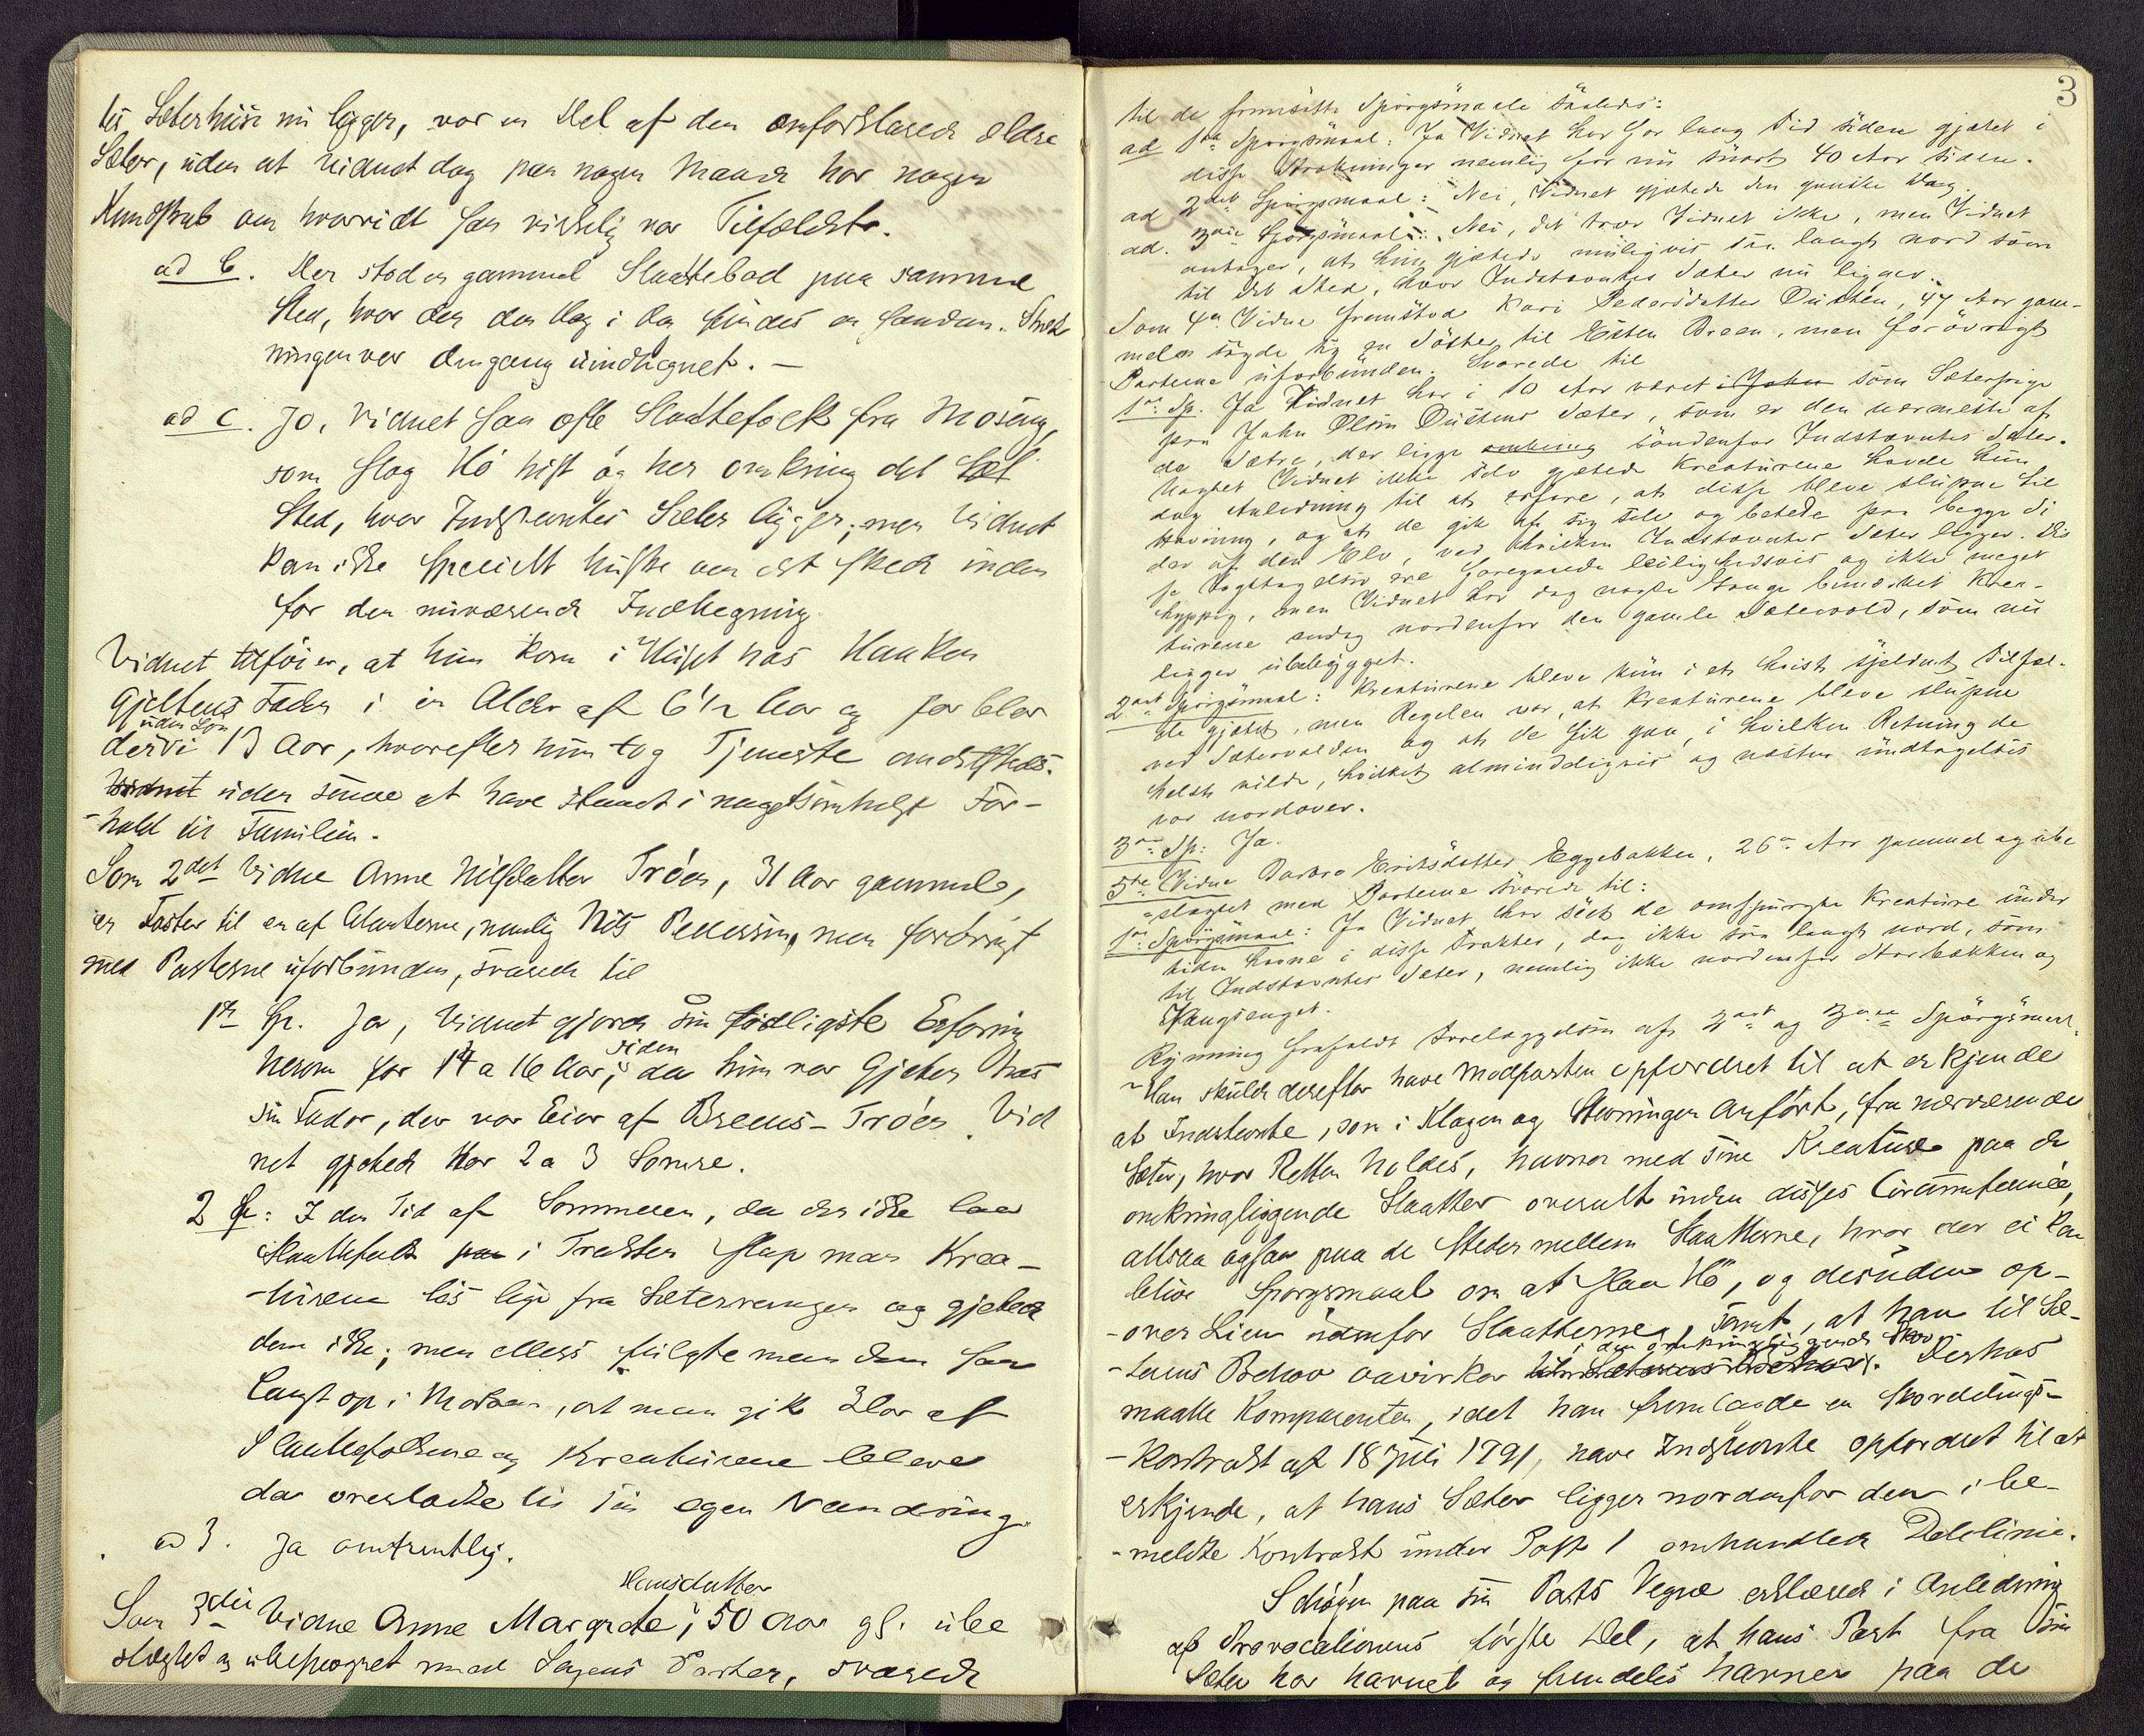 tes Sæterhuse nu ligger, var en Del af den omforklarede ældre
Sæter, uden at Vidnet dog paa nogen Maade har nogen
Kundskab om hvorvidt saa virkelig var Tilfældet.
ad b. Der stod en gammel Slaattebod paa samme
Sted, hvor der den Dag i Dag findes en saadan. Stræk
ningen var dengang uindhegnet. —
ad c. Jo, Vidnet saa ofte Slaattefolk fra Moseng,
som slog Hö hist og her omkring det
Sted, hvor Indstevntes Sæter ligger; men Vidnet
kan ikke specielt huske om det skede inden
for den nuværende Indhegning.
Vidnet tilföier, at hun kom i Huset hos Haaken
Gjeltens Fader i en Alder af 6½ Aar og forblev
der i uden Lön 13 Aar, hvorefter hun tog Tjeneste andetsteds.
Vidnet uden senere at have staaet i nogetsomhelst For-
-hold til Familien.
Som 2det Vidne Anne Nilsdatter Tröen, 31 Aar gammel,
er Faster til en af Citanterne, nemlig Nils Pedersen, men forövrigt
med Parterne uforbunden, svarede til
1ste Sp. Ja, Vidnet gjorde sin tidligste Erfaring
herom for 14 a 16 Aar siden, da hun var Gjeter hos
sin Fader, der var Eier af Breens-Tröen. Vid
net gjetede der 2 a 3 Somre.
2 Sp: I den Tid af Sommeren, da der ikke laa
Slaattefolk paa i Trakten slap man Krea-
-turene lös lige fra Sætervangen og gjetede
dem ikke; men ellers fulgte man dem saa
langt op i Marken, at man gik klar af
Slaattefolkene og Kreaturene bleve
da overladte til sin egen Vandring.
ad 3. Ja omtrentlig.
Som 3die Vidne Anne Margrete Hansdatter, 50 Aar gl. ube
slægtet og ubesvogret med Sagens Parter, svarede
3
til de fremsatte Spörgsmaale saaledes:
ad 1ste Spörgsmaal: Ja Vidnet har for lang Tid siden gjætet i
disse Strækninger nemlig for nu snart 40 Aar siden.
ad 2det Spörgsmaal: Nei, Vidnet gjætede den ganske Dag.
ad. 3die Spörgsmaal: Nei, det tror Vidnet ikke, men Vidnet
antager, at hun gjætede muligvis saa langt nord som
til det Sted, hvor Indstævntes Sæter nu ligger.
Som 4de Vidne fremstod Kari Pedersdatter Dusten, 44 Aar gam-
mel sagde sig en Söster til Esten Breen, men forövrigt
Parterne uforbunden. Svarede til
1ste Sp. Ja Vidnet har i 10 Aar været i John som Sæterpige
paa John Olsen Dustens Sæter, som er den nærmeste af
de Sætre, der ligge omkring söndenfor Indstævntes Sæter.
Uagtet Vidnet ikke selv gjætede Kreaturene havde hun
dog Anledning til at erfare, at disse bleve slupne til
Havning, og at de gik af sig selv og betede paa begge Si
der af den Elv, ved hvilken Indstævntes Sæter ligger. Dis
se Iagttagelser ere foregaaede leilighedsvis og ikke meget
hyppig, men Vidnet har dog nogle Gange bemærket Krea-
turene endog nordenfor den gamle Sætervold, som nu
ligger ubebygget.
2det Spörgsmaal: Kreaturene bleve kun i et höist sjeldent Tilfæl-
de gjætet, men Regelen var, at Kreaturene bleve slupne
ved Sætervolden og at de fik gaa, i hvilken Retning de
helst vilde, hvilket almindeligvis og næsten undtagelsvis
var nordover.
3die Sp: Ja.
5te Vidne Barbro Eriksdatter Eggebakken, 26 Aar gammel og ube
-slægtet med Parterne svarede til:
1ste Spörgsmaal: Ja Vidnet har seet de omspurgte Kreature under
tiden havne i disse Trakter, dog ikke saa langt nord, som
til Indstævntes Sæter, nemlig ikke nordenfor Storbækken og
Haugsenget.
Rynning frafaldt Forelæggelsen af 2det og 3die Spörgsmaal.
Han skulde derefter have Modparten opfordret til at erkjende
at Indstevnte, som i Klagen og Stevningen anfört, fra nærværende
Sæter, hvor Retten holdes, havner med sine Kreature paa de
omkringliggende Slaatter overalt inden disses Circumference,
altsaa ogsaa paa de Steder mellem Slaatterne, hvor der ei kan
blive Spörgsmaal om at slaa Hö, og desuden op-
-over Lien udenfor Slaatterne, samt, at han til Sæ-
-terens Behov avirker i den omkringliggende Skov. Derhos
maatte Komparenten, idet han fremlagde en Skovdelings-
-kontrakt af 18 Juli 1791, have Indstevnte opfordret til at
erkjende, at hans Sæter ligger nordenfor den i be-
-meldte Kontrakt under Post 1 omhandlede Delelinie.
Schöyen paa sin Parts Vegne erklærede i Anledning
af Provocationens förste Del, at hans Part fra sin
Sæter har havnet og fremdeles havner paa de